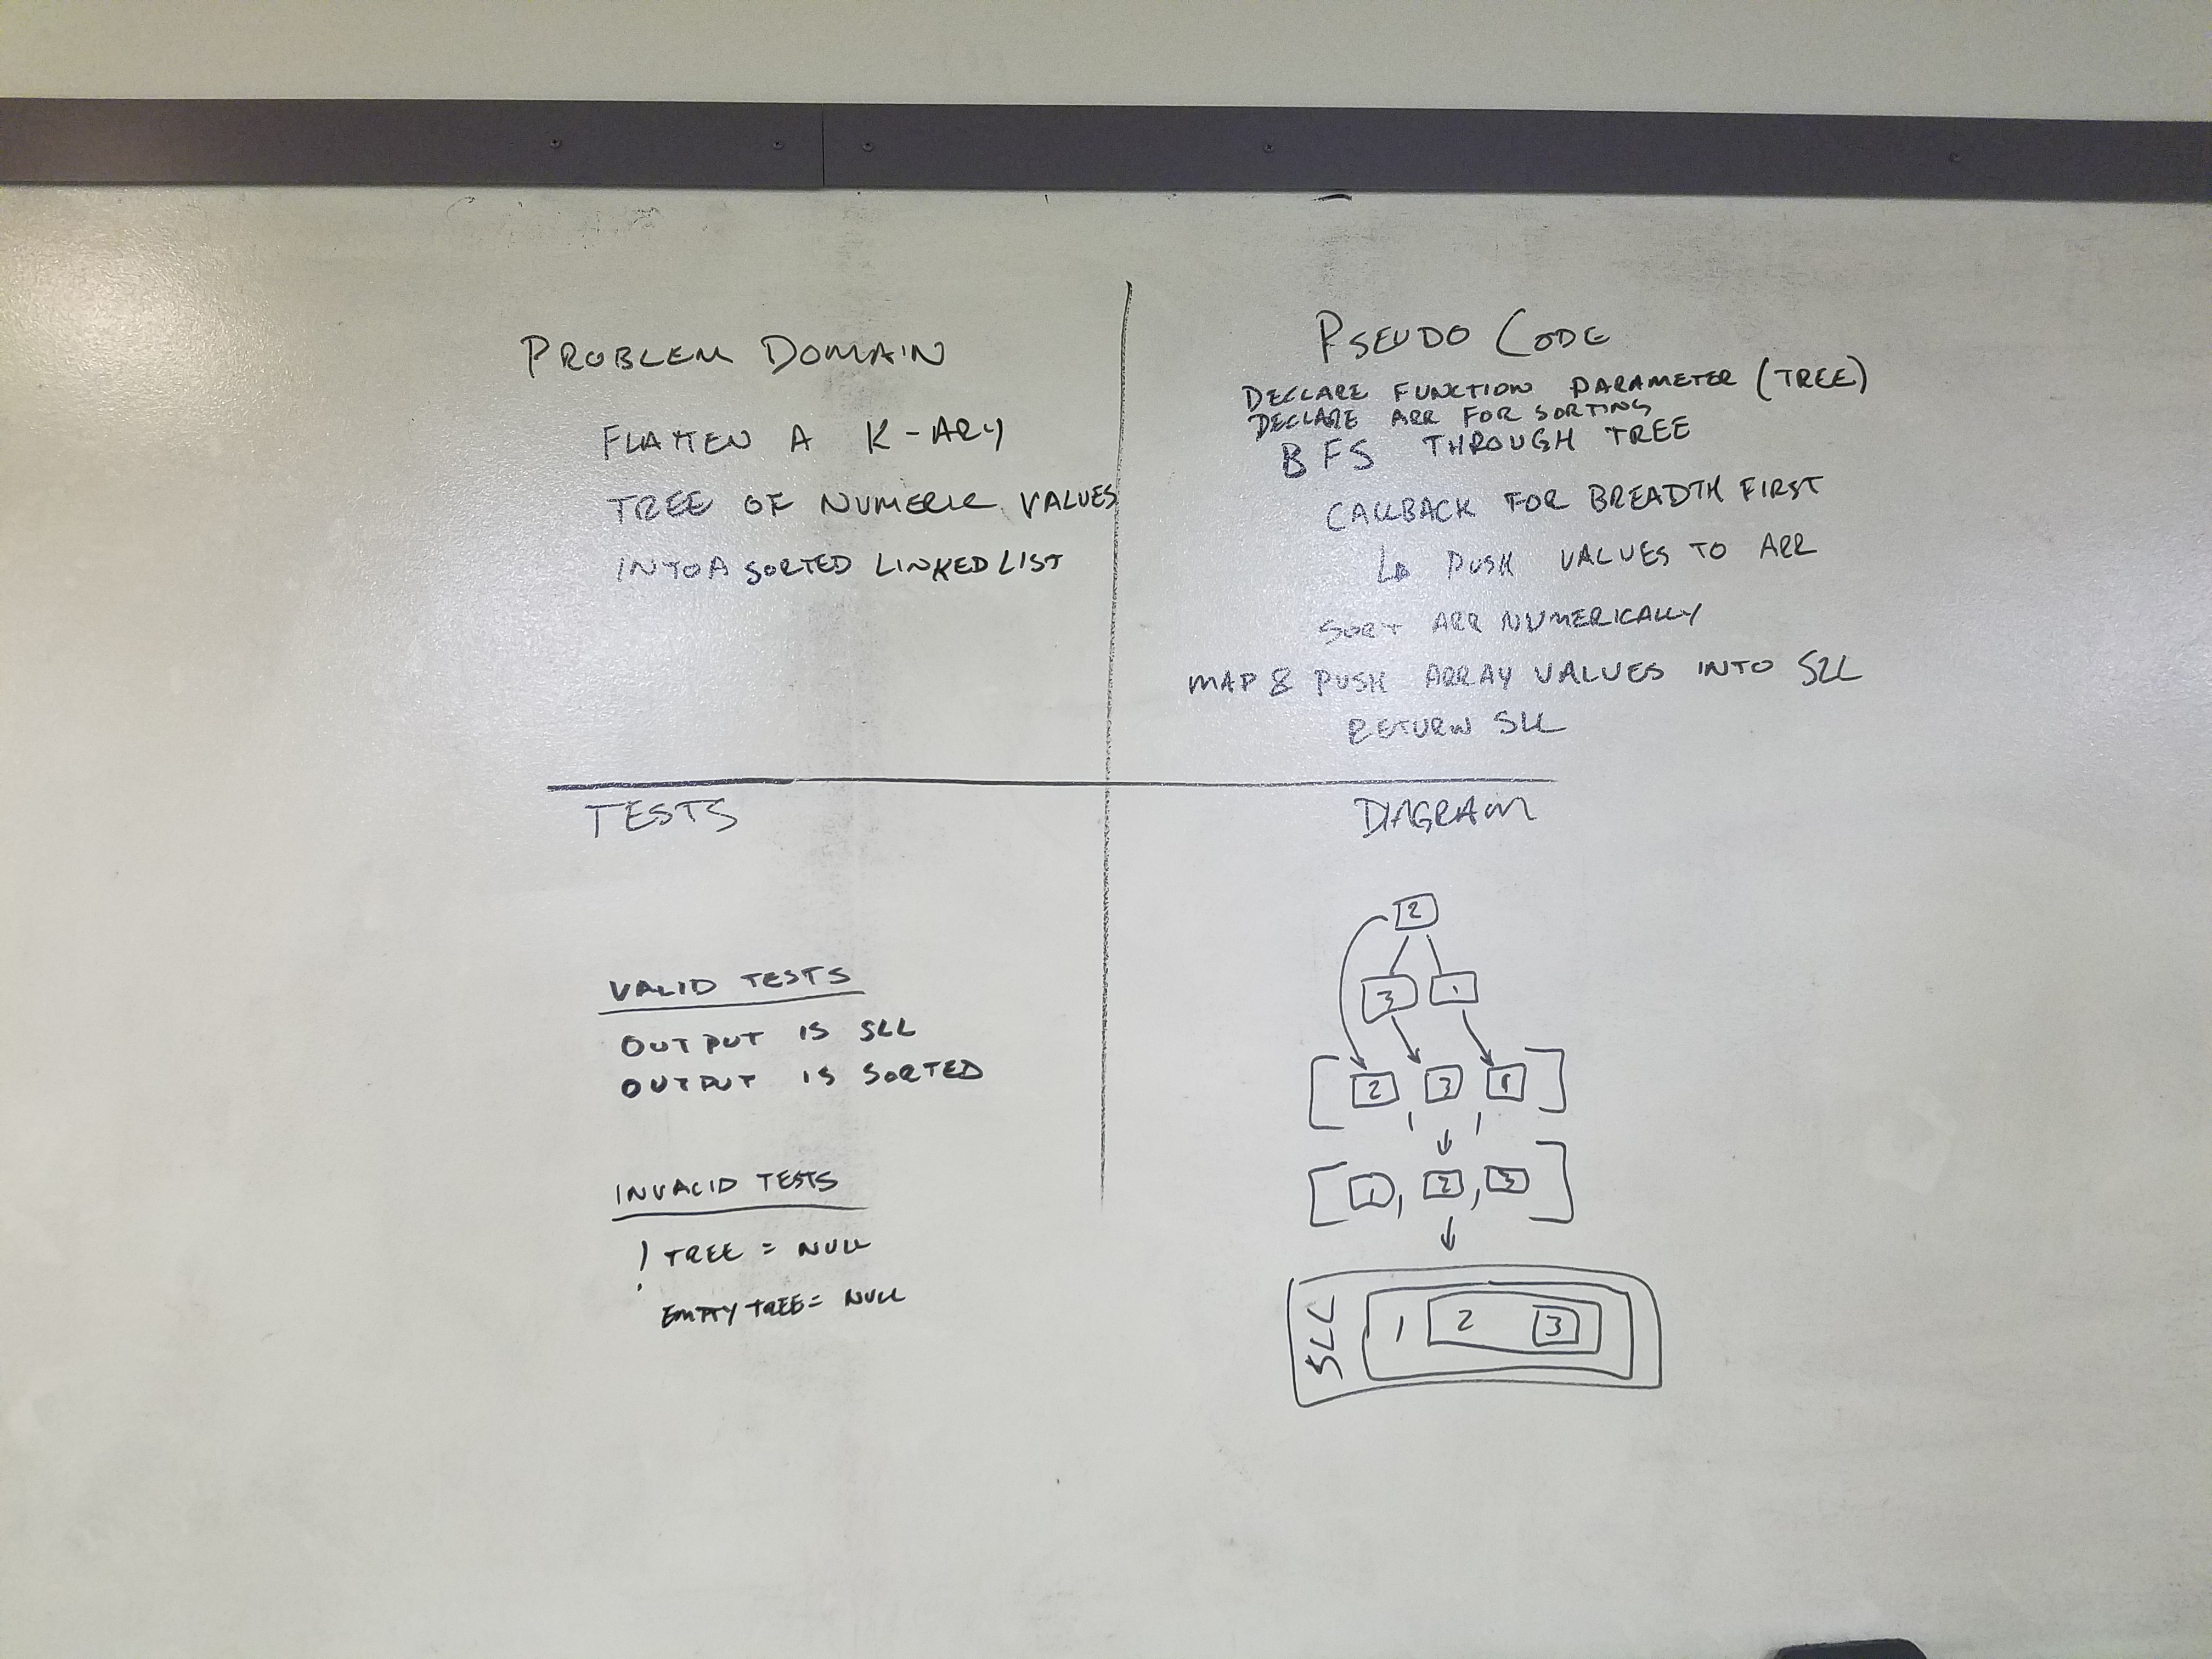 PROBLEM DOMAIN
FLATTEN A K-ARY
TREE OF NUMERIC VALUES
INTO A SORTED LINKED LIST
PSEUDO CODE
DECLARE FUNCTION PARAMETER (TREE)
DECLARE ARR FOR SORTING
BFS THROUGH TREE
CALLBACK FOR BREADTH FIRST
↳ PUSH VALUES TO ARR
SORT ARR NUMERICALLY
MAP & PUSH ARRAY VALUES INTO SLL
RETURN SLL
TESTS
VALID TESTS
OUTPUT IS SLL
OUTPUT IS SORTED
INVALID TESTS
! TREE = NULL
EMPTY TREE = NULL
DIAGRAM
2
3 1
[2, 3, 1]
[1, 2, 3]
SLL 1 2 3